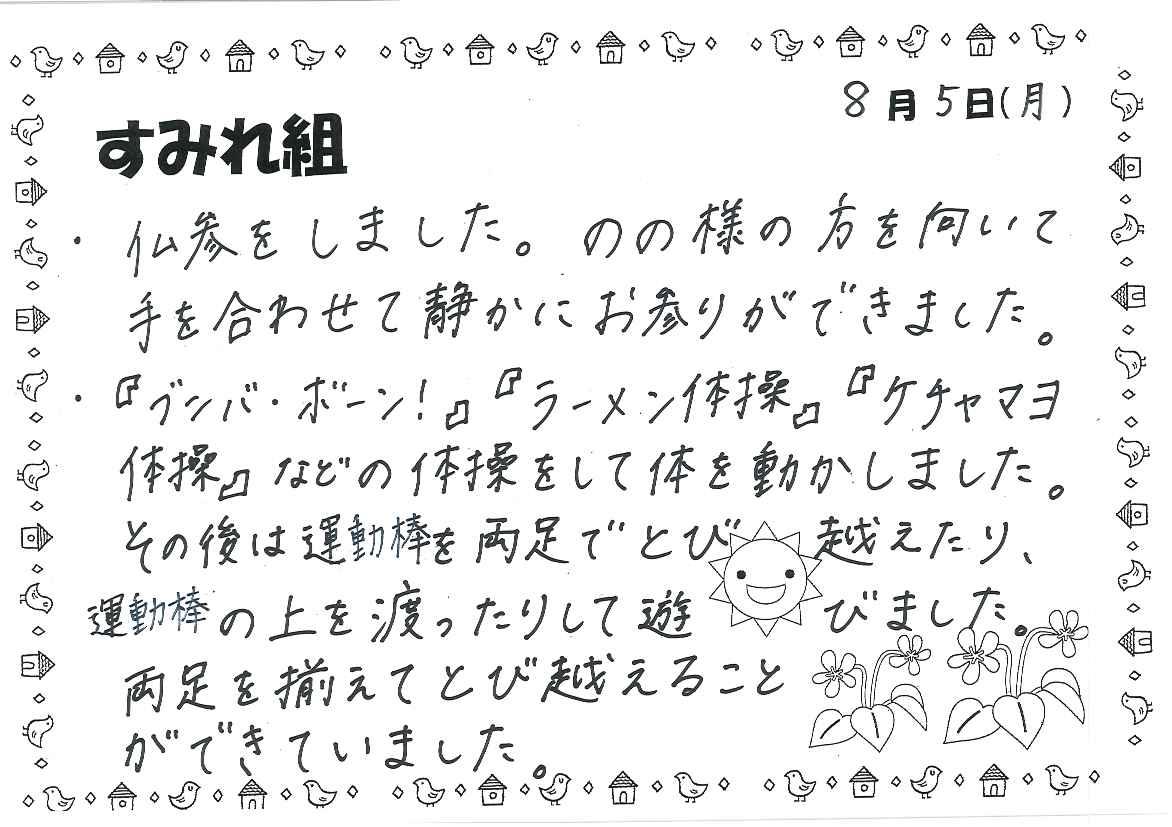 8月5日(月)
すみれ組
・仏参をしました。のの様の方を向いて
手を合わせて静かにお参りができました。
・『ブンバ・ボーン!』『ラーメン体操』『ケチャマヨ
体操』などの体操をして体を動かしました。
その後は運動棒を両足でとび越えたり、
運動棒の上を渡ったりして遊びました。
両足を揃えてとび越えること
ができていました。